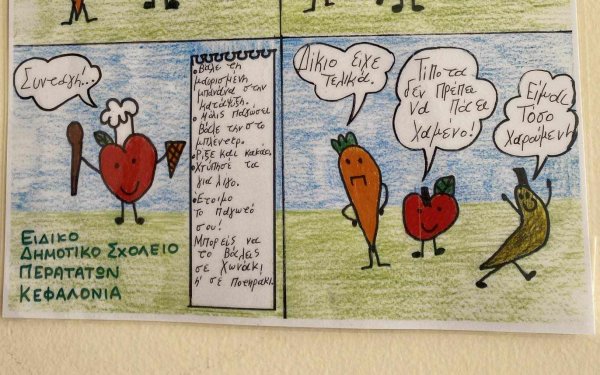 Συνταγή...
•Βάλε τη
μαυρισμένη
μπανάνα στην
κατάψυξη.
•Μόλις παγώσει
βάλε την στο
μπλέντερ.
•Ρίξε και κακάο.
•Χτύπησε τα
για λίγο.
•Έτοιμο
το παγωτό
σου!
Μπορείς να
το βάλεις
σε χωνάκι
ή σε ποτηράκι.
ΕΙΔΙΚΟ
ΔΗΜΟΤΙΚΟ ΣΧΟΛΕΙΟ
ΠΕΡΑΤΑΤΩΝ
ΚΕΦΑΛΟΝΙΑ
Δίκιο είχε
τελικά.
Τίποτα
δεν πρέπει
να πάει
χαμένο!
Είμαι
τόσο
χαρούμενη